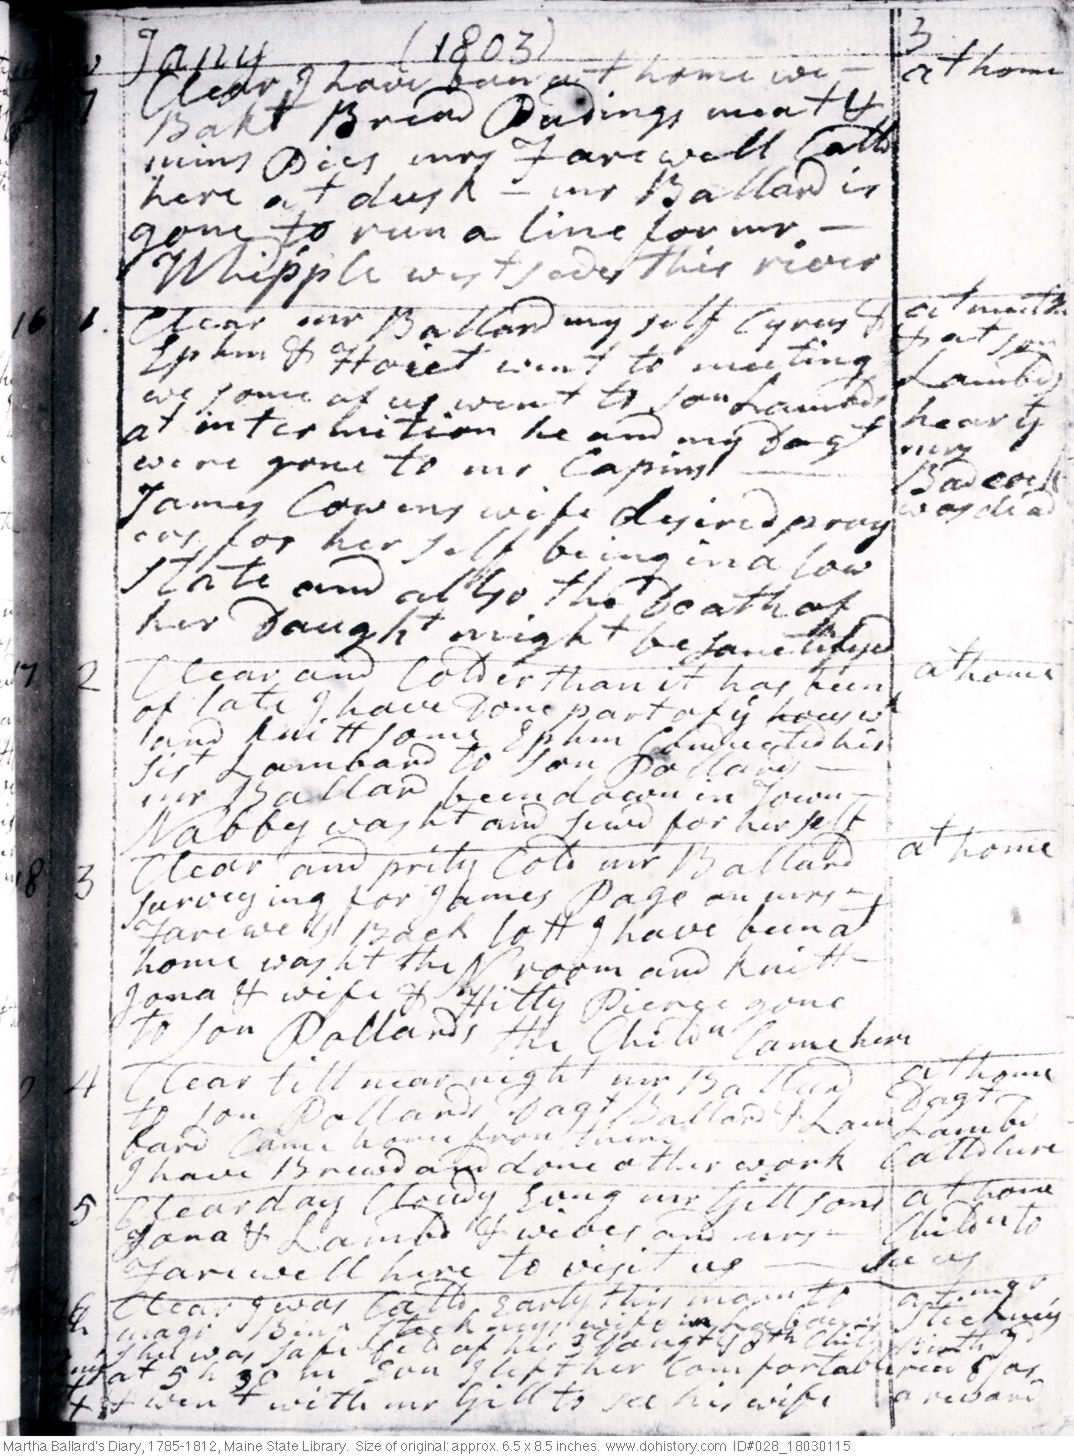 Jany (1803) 3
7 Clear I have been at home we - at home
Bakt Bread Pudings meat &
mins Pies mrs Farewell Calld
here at dusk - mr Ballard is
gone to run a line for mr -
Whipple west side this river
16 1. Clear mr Ballard my self Cyrus & at meetn
Ephm & Hoiet went to meeting & at son
we some of us went to son Lambds Lambds
at intermition he and my Dagt heard
were gone to mr Capins mrs
Badcock
James Cowens wife desired pray was dead
ers for her self being in a low
state and allso the Death of
her Daught might be sanctifyed
17 2 Clear and Colder than it has been at home
of late I have Done part of ye houswk
and knitt some Ephm Conducted his
sist Lambard to son Pollards -
mr Ballard been down in Town -
Nabby washt and sewd for her self
18 3 Clear and prity Cold mr Ballard at home
surveying for James Page on mrs -
Farewells Back lott I have been at
home washt the N room and knitt -
Jona & wife & Hitty Pierce gone
to son Pollards the Childn Came here
4 Clear till near night mr Ballard at home
to son Pollards Dagt Ballard & Lam Dagt
bard Came home from there Lambd
I have Brewd and done other work Calld here
5 Clear day Cloudy Evng mr Gill sons at home
Jona & Lambd & wives and mrs - Childn to
Farewell here to visit us - see us
Clear I was Calld Early this morn to at mr
Benn Stickneys wife in Labour Stickneys
shee was safe bed of her 3d Daught & 8th Child Birth
at 5 h 30 m I left her Comfortable
& went with mr Gill to see his wife a reward
Martha Ballard's Diary, 1785-1812, Maine State Library. Size of original: approx. 6.5 x 8.5 inches. www.dohistory.com ID#028_18030115